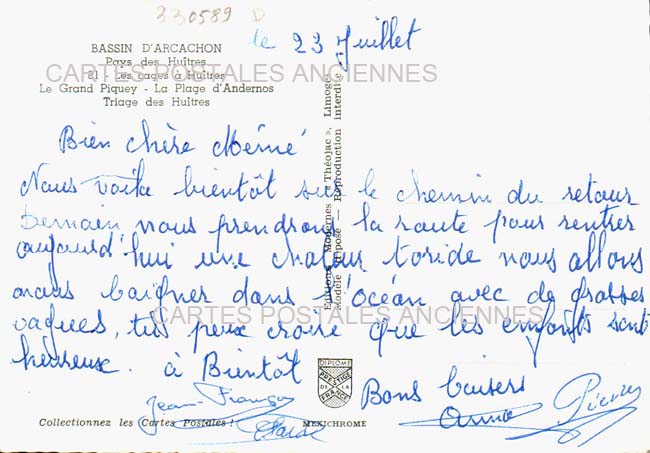 330589 D
le 23 Juillet
BASSIN D'ARCACHON
Pays des Huîtres
81 - Les cages à Huîtres
Le Grand Piquey - La Plage d'Andernos
Triage des Huîtres
CARTES POSTALES ANCIENNES
Bien chère Mémé
Nous voila bientôt sur le chemin du retour
Demain nous prendrons la route pour rentrer
aujourd'hui une chaleur toride nous allons
nous baigner dans l'océan avec de grosses
vagues, tu peux croire que les enfants sont
heureux. à Bientôt
CARTES POSTALES ANCIENNES
Editions Modernes « Théojac », Limoges
Modèle Déposé — Reproduction interdite
DIPLOME
PRESTIGE
DE LA
FRANCE
Bons baisers
Jean-François
Anna
Pierre
Collectionnez les Cartes Postales !
MEXICHROME